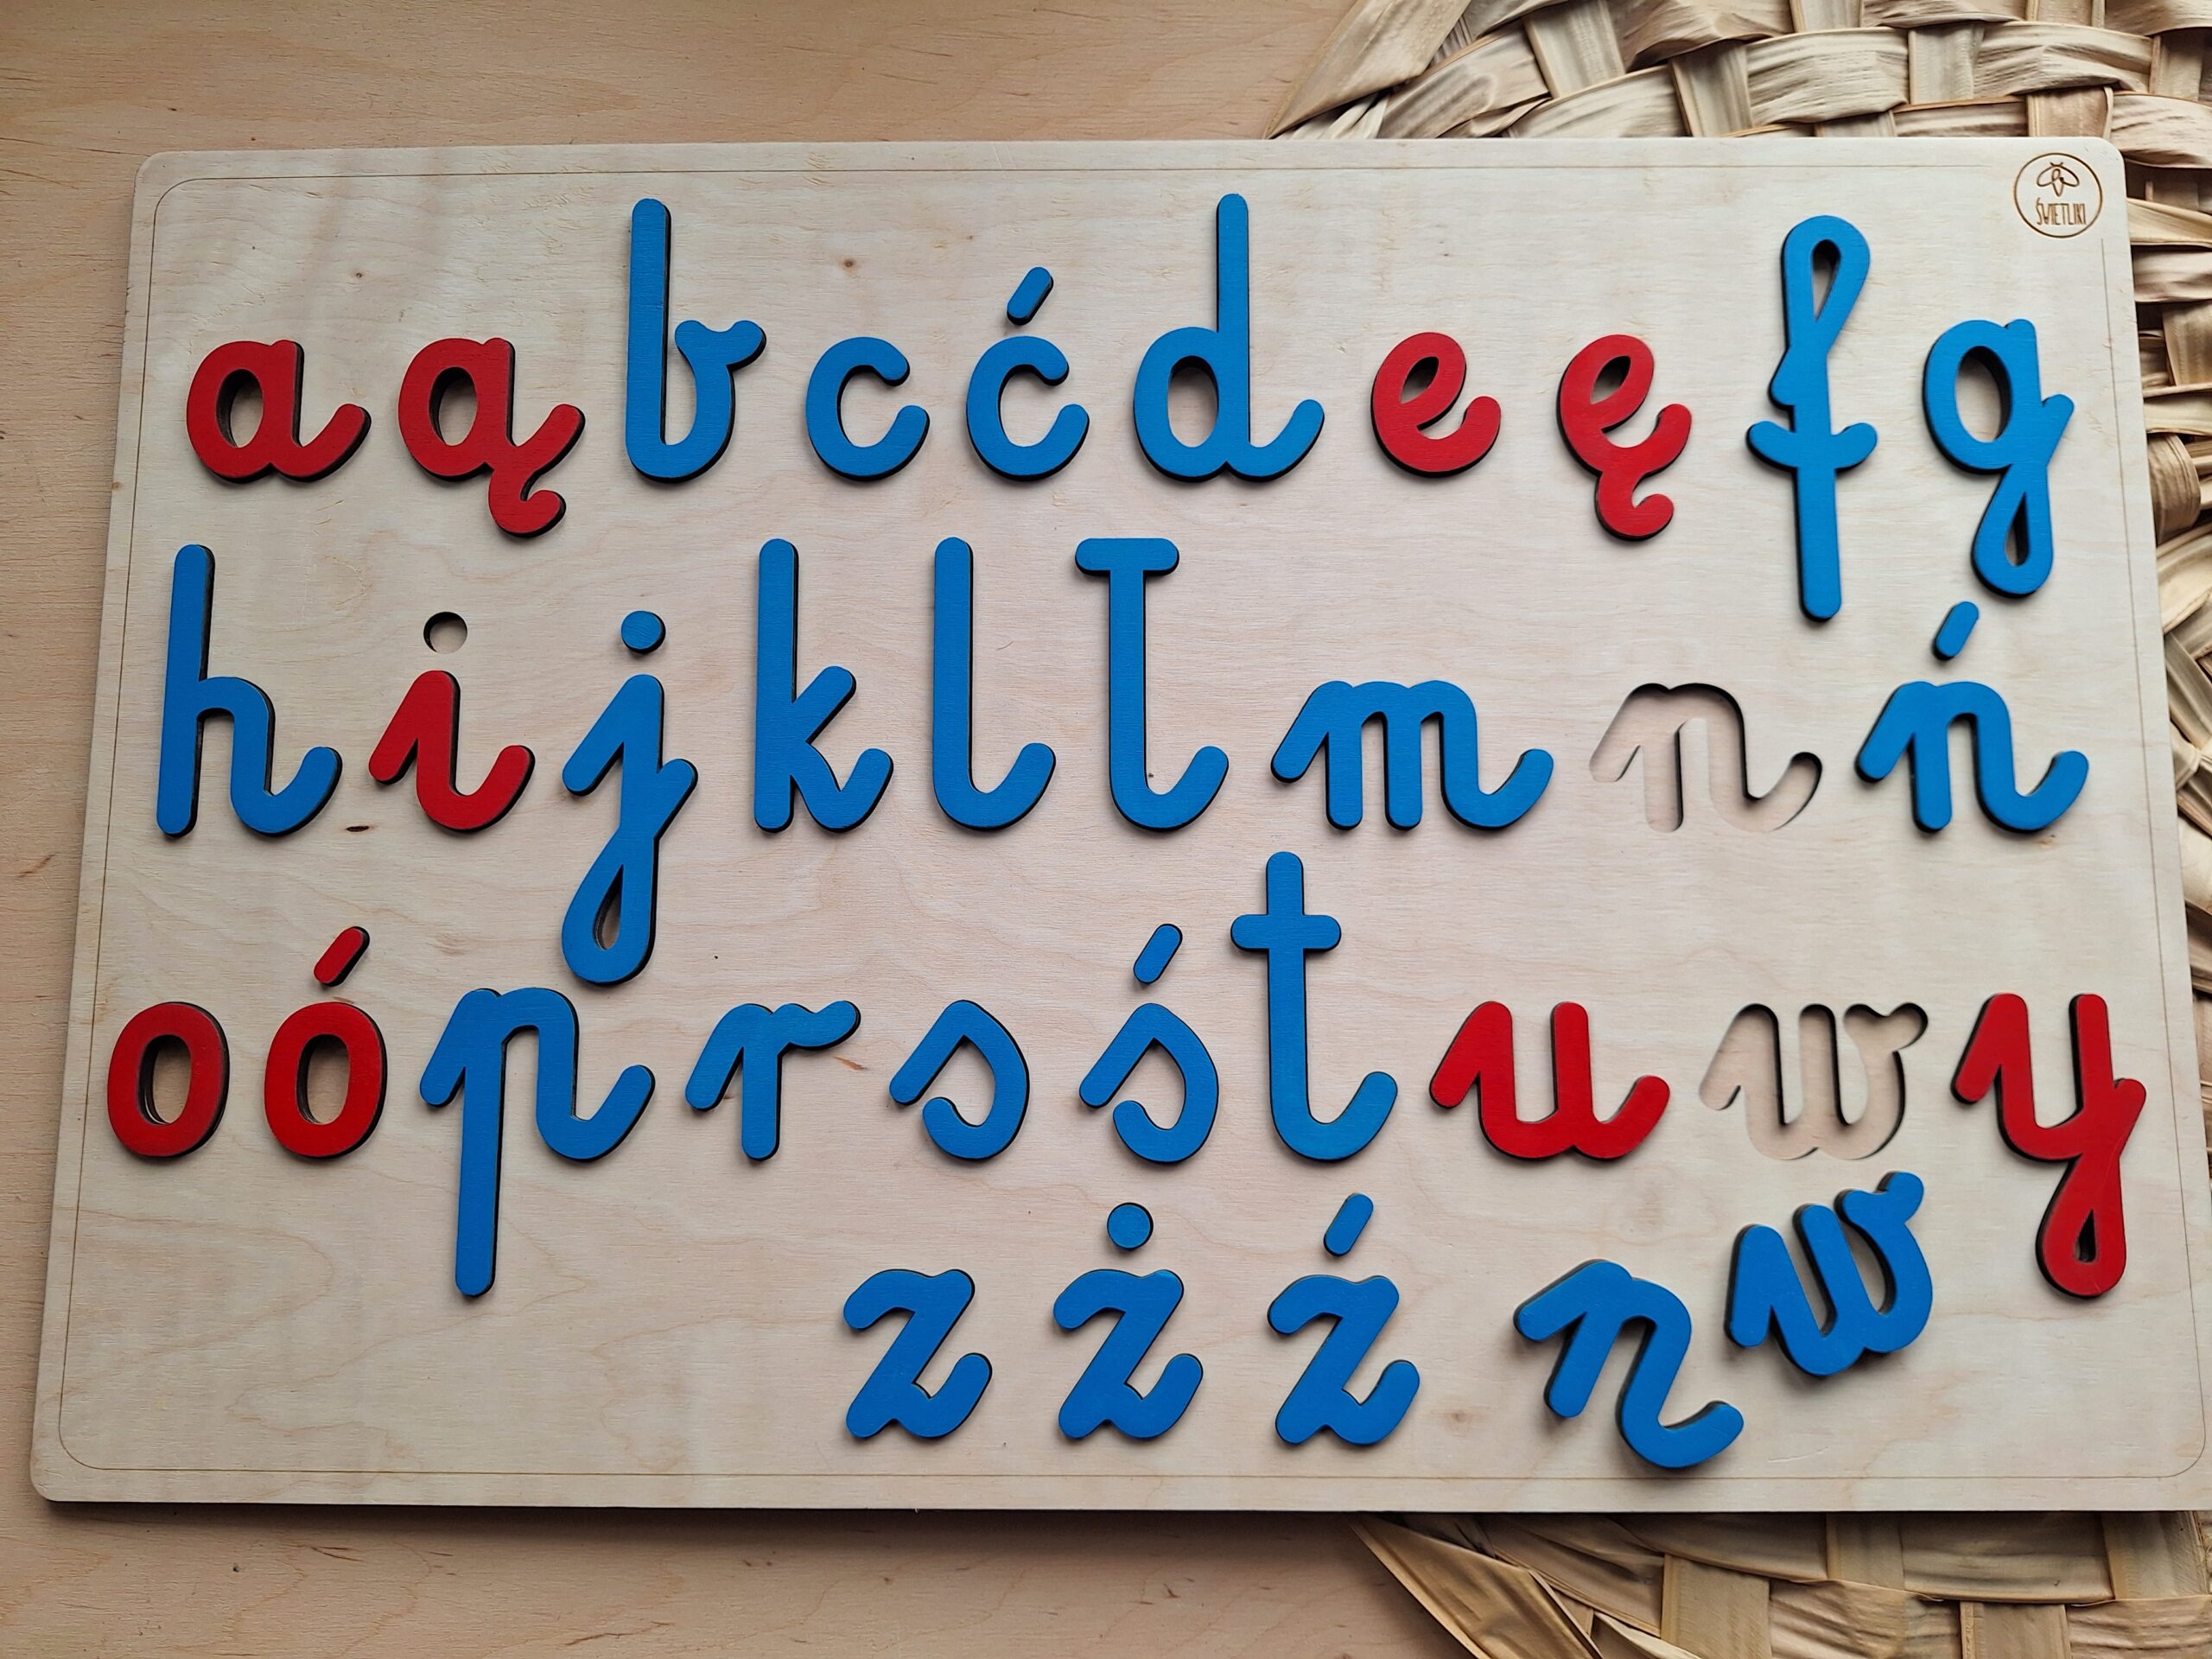 ŚWIETLIKI
a ą b c ć d e ę f g
h i j k l ł m n ń
o ó p r s ś t u w y
z ż ź n w